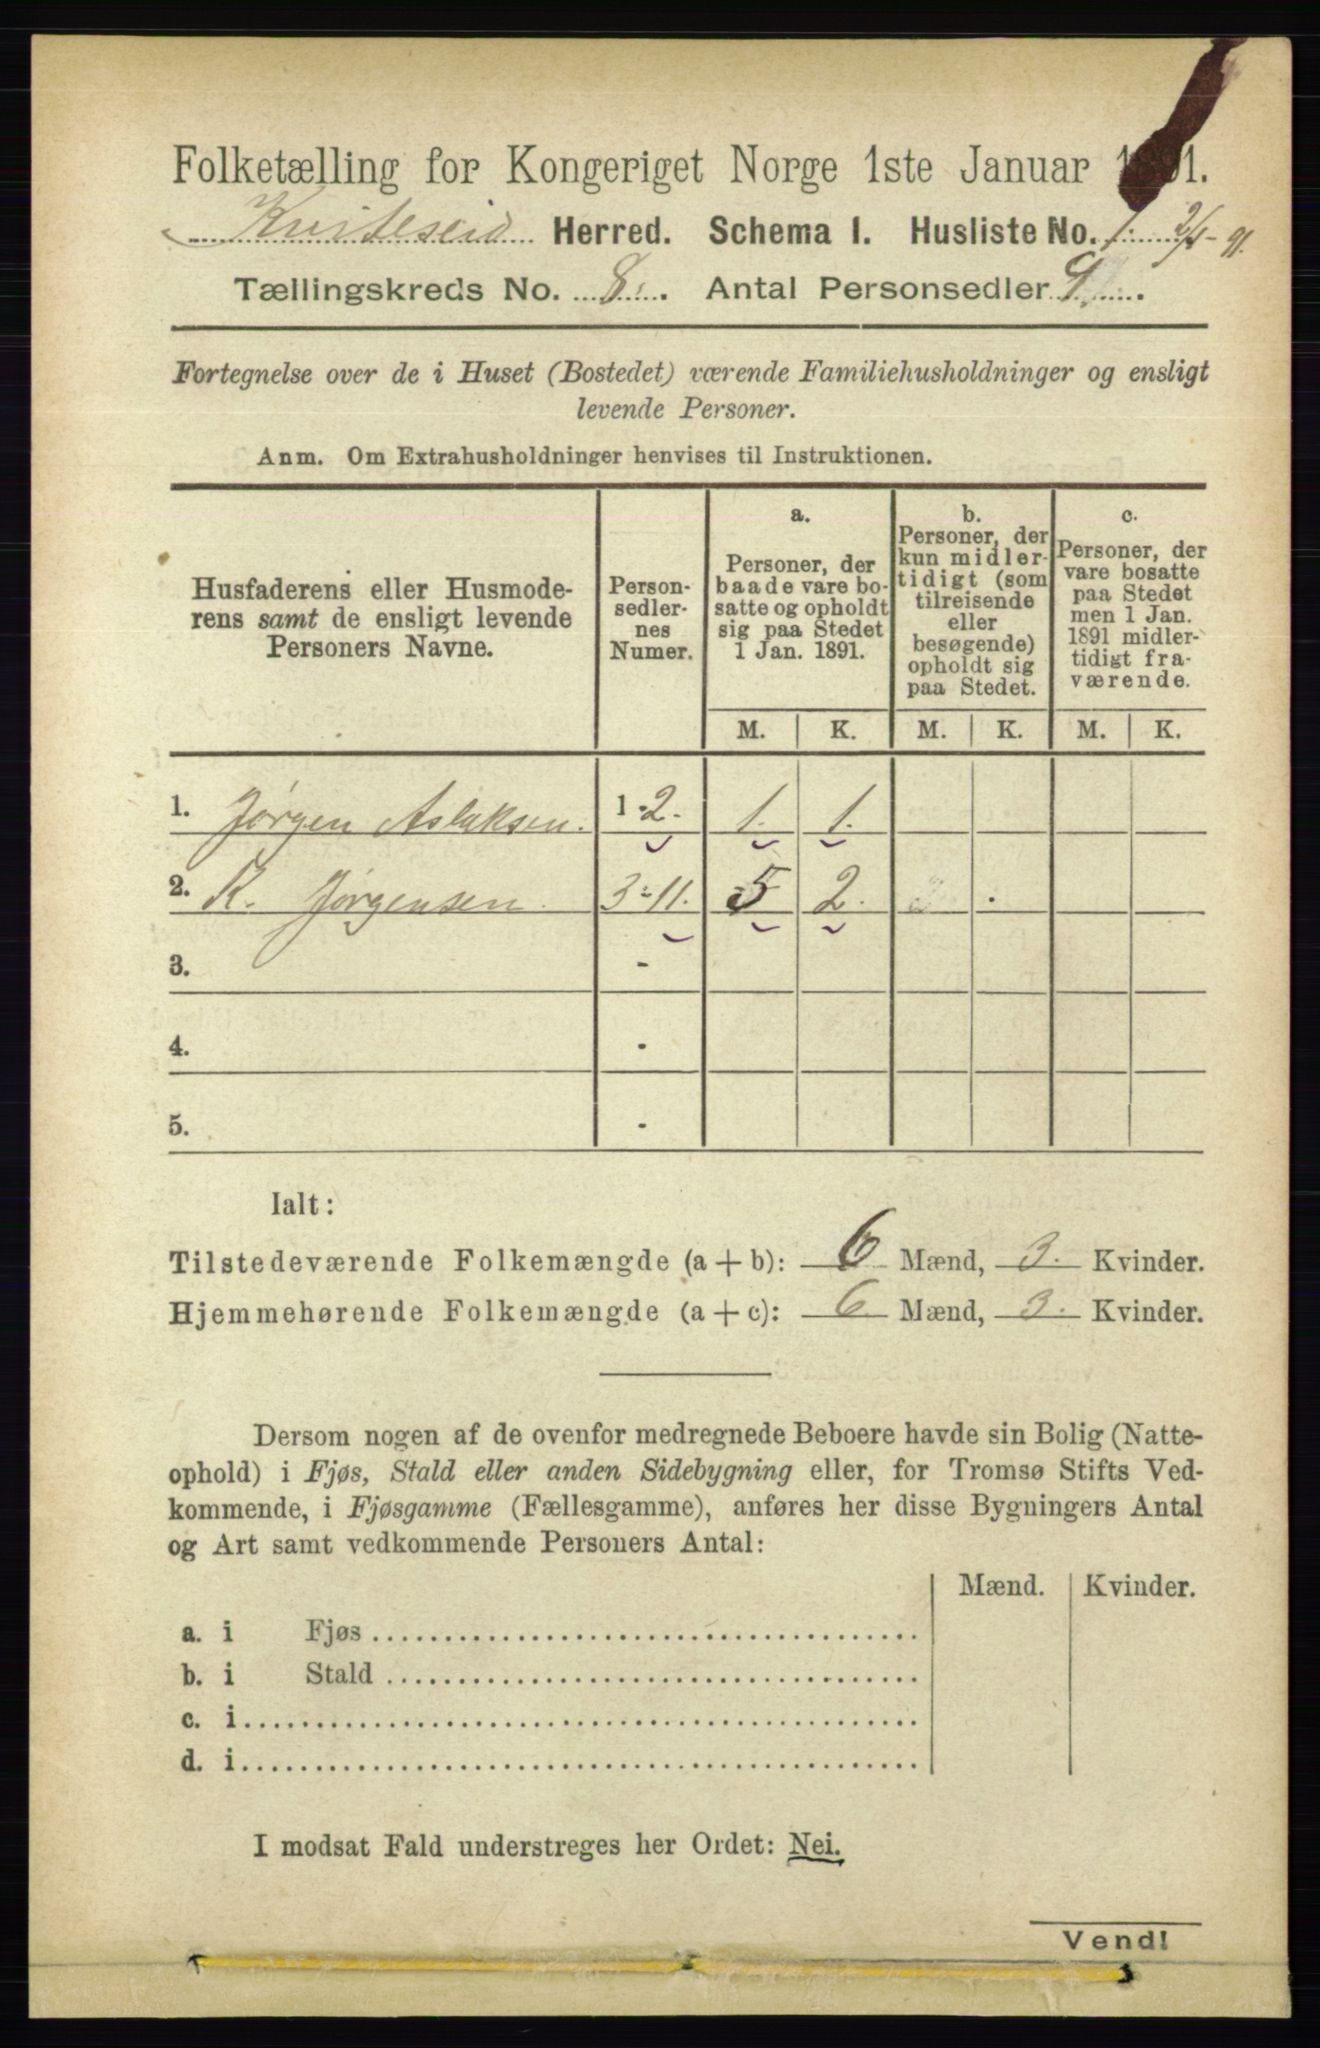 Folketælling for Kongeriget Norge 1ste Januar 1891.
Kviteseid Herred. Schema I. Husliste No. 1. 2/1-91.
Tællingskreds No. 8. Antal Personsedler 9
Fortegnelse over de i Huset (Bostedet) værende Familiehusholdninger og ensligt
levende Personer.
Anm. Om Extrahusholdninger henvises til Instruktionen.
Husfaderens eller Husmode-
rens samt de ensligt levende
Personers Navne.
Person-
sedler-
nes
Numer.
a.
Personer, der
baade vare bo-
satte og opholdt
sig paa Stedet
1 Jan. 1891.
b.
Personer, der
kun midler-
tidigt (som
tilreisende
eller
besøgende)
opholdt sig
paa Stedet.
c.
Personer, der
vare bosatte
paa Stedet
men 1 Jan.
1891 midler-
tidigt fra-
værende.
M. K. M. K. M. K.
1. Jørgen Aslaksen. 1-2. 1. 1.
2. K. Jørgensen. 3-11. 5 2.
3. -
4. -
5. -
Ialt:
Tilstedeværende Folkemængde (a + b): 6 Mænd, 3. Kvinder.
Hjemmehørende Folkemængde (a + c): 6. Mænd, 3. Kvinder.
Dersom nogen af de ovenfor medregnede Beboere havde sin Bolig (Natte-
ophold) i Fjøs, Stald eller anden Sidebygning eller, for Tromsø Stifts Ved-
kommende, i Fjøsgamme (Fællesgamme), anføres her disse Bygningers Antal
og Art samt vedkommende Personers Antal:
Mænd. Kvinder.
a. i Fjøs
b. i Stald
c. i
d. i
I modsat Fald understreges her Ordet: Nei.
Vend!